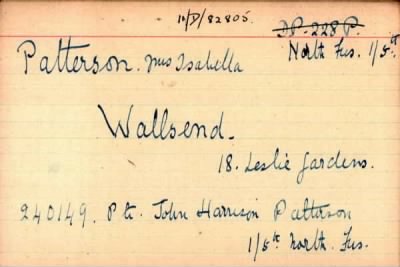 10/D/82805.
DP. 228 P.
Patterson. Mrs Isabella
North Fus. 1/5th
Wallsend.
18. Leslie Gardens.
240149. Pte. John Harrison Patterson
1/5th North. Fus.